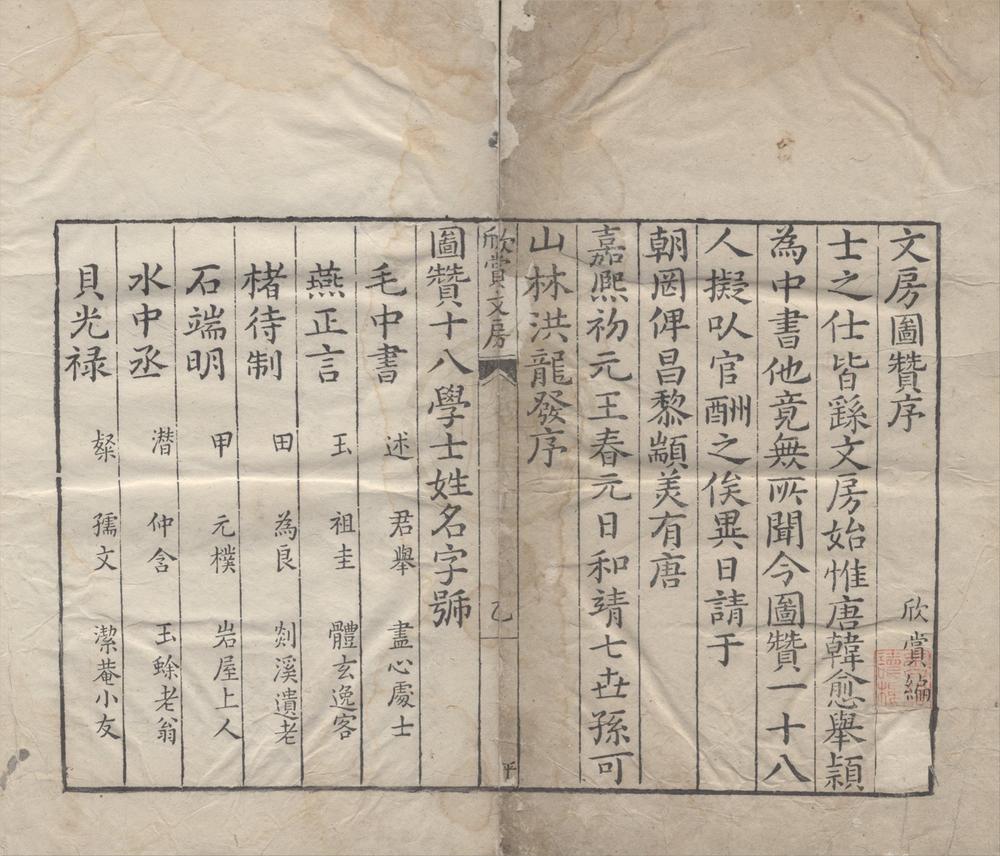 文房圖贊序 欣賞編
士之仕皆繇文房始惟唐韓愈舉潁
為中書他竟無所聞今圖贊一十八
人擬以官酬之俟異日請于
朝罔俾昌黎顓羙有唐
嘉熙初元王春元日和靖七世孫可
山林洪龍發序
欣賞文房 乙
圖贊十八學士姓名字號
毛中書 述 君舉 盡心處士
燕正言 玉 祖圭 體玄逸客
楮待制 田 為良 剡溪遺老
石端明 甲 元樸 岩屋上人
水中丞 潛 仲含 玉蜍老翁
貝光祿 粲 孺文 潔菴小友